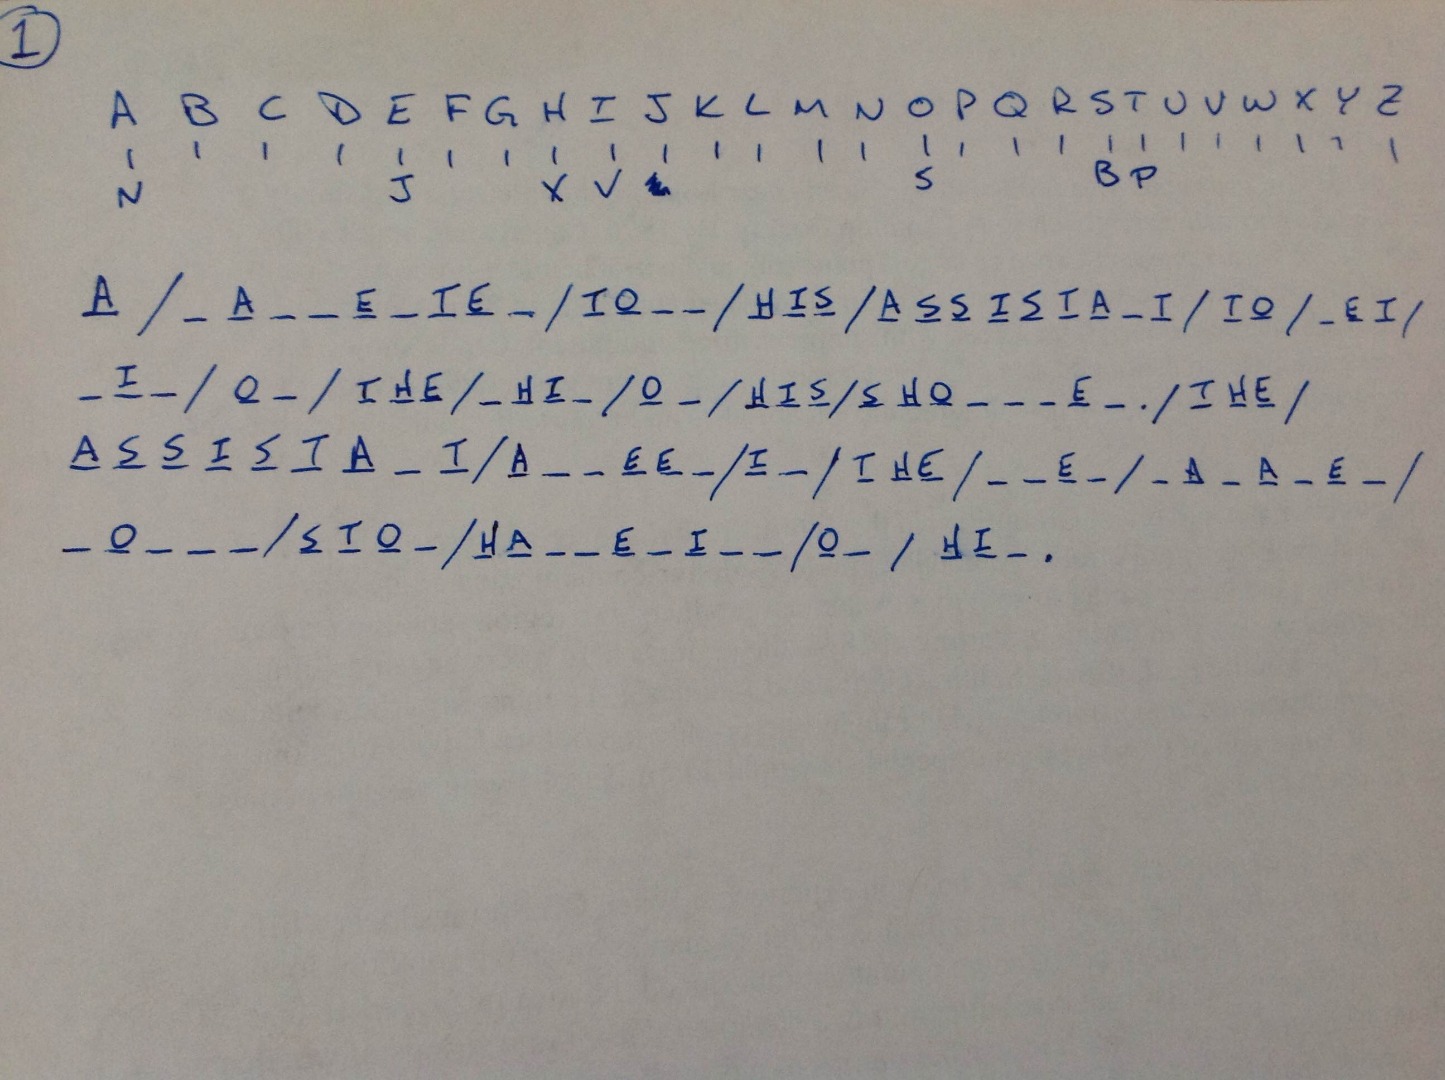 1
A B C D E F G H I J K L M N O P Q R S T U V W X Y Z
N J X V S B P
A / _ A _ _ E _ T E _ / T O _ _ / H I S / A S S I S T A _ T / T O / _ E T /
_ I _ / O _ / T H E / _ H I _ / O _ / H I S / S H O _ _ _ E _ . / T H E /
A S S I S T A _ T / A _ _ E E _ / I _ / T H E / _ _ E _ / _ A _ A _ E _ /
_ O _ _ _ / S T O _ / H A _ _ E _ I _ _ / O _ / H I _ .